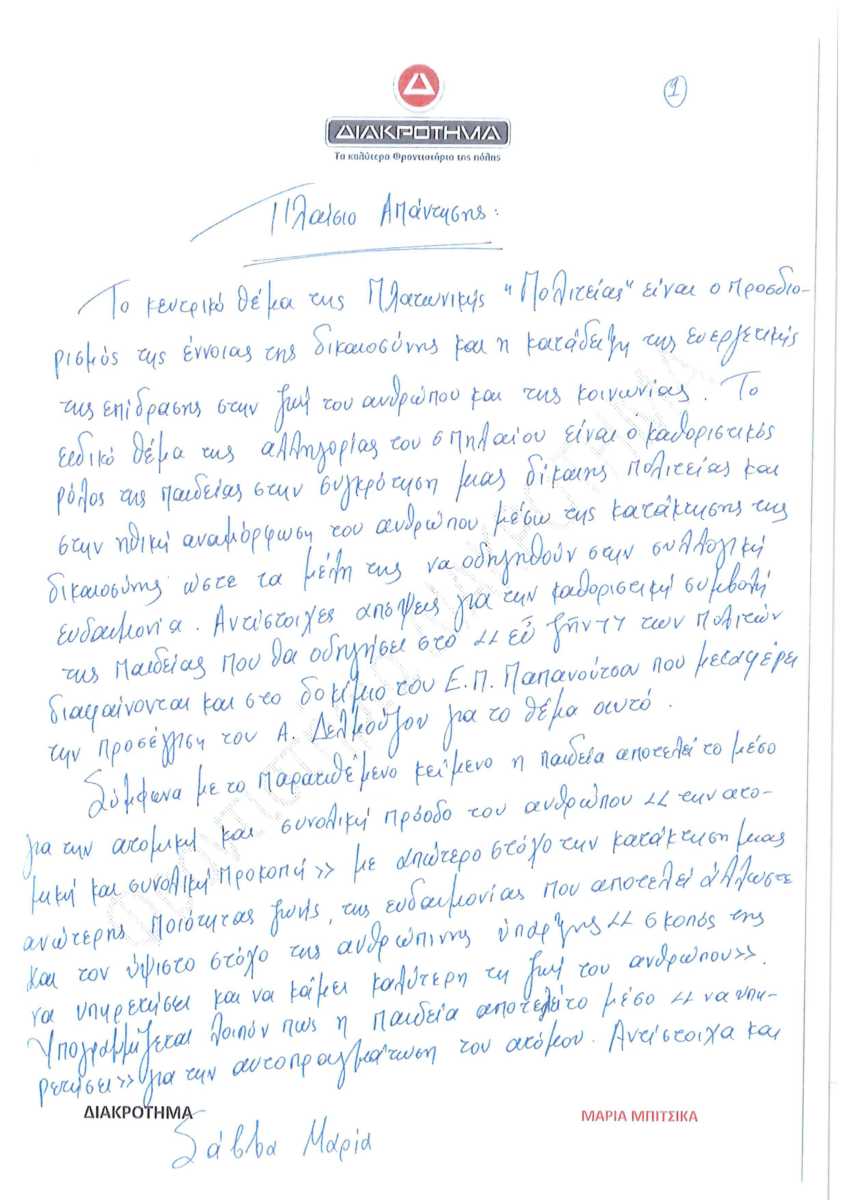 1
Δ
ΔΙΑΚΡΟΤΗΜΑ
Το καλύτερο Φροντιστήριο της πόλης
Πλαίσιο Απάντησης:
Το κεντρικό θέμα της Πλατωνικής "Πολιτείας" είναι ο προσδιο-
ρισμός της έννοιας της δικαιοσύνης και η κατάδειξη της ευεργετικής
της επίδρασης στην ζωή του ανθρώπου και της κοινωνίας. Το
ειδικό θέμα της αλληγορίας του σπηλαίου είναι ο καθοριστικός
ρόλος της παιδείας στην συγκρότηση μιας δίκαιης πολιτείας και
στην ηθική αναμόρφωση του ανθρώπου μέσω της κατάκτησης της
δικαιοσύνης ώστε τα μέλη της να οδηγηθούν στην συλλογική
ευδαιμονία. Αντίστοιχες απόψεις για την καθοριστική συμβολή
της παιδείας που θα οδηγήσει στο <<εὖ ζῆν>> των πολιτών
διαφαίνονται και στο δοκίμιο του Ε.Π. Παπανούτσου που μεταφέρει
την προσέγγιση του Α. Δελμούζου για το θέμα αυτό.
Σύμφωνα με το παρατιθέμενο κείμενο η παιδεία αποτελεί το μέσο
για την ατομική και συνολική πρόοδο του ανθρώπου <<την ατο-
μική και συνολική προκοπή>> με απώτερο στόχο την κατάκτηση μιας
ανώτερης ποιότητας ζωής, της ευδαιμονίας που αποτελεί άλλωστε
και τον ύψιστο στόχο της ανθρώπινης ύπαρξης <<σκοπός της
να υπηρετήσει και να κάμει καλύτερη τη ζωή του ανθρώπου>>.
Υπογραμμίζεται λοιπόν πως η παιδεία αποτελεί το μέσο <<να υπη-
ρετήσει>> για την αυτοπραγμάτωση του ατόμου. Αντίστοιχα και
ΔΙΑΚΡΟΤΗΜΑ
ΜΑΡΙΑ ΜΠΙΤΣΙΚΑ
Σάββα Μαρία
ΦΡΟΝΤΙΣΤΗΡΙΟ ΔΙΑΚΡΟΤΗΜΑ